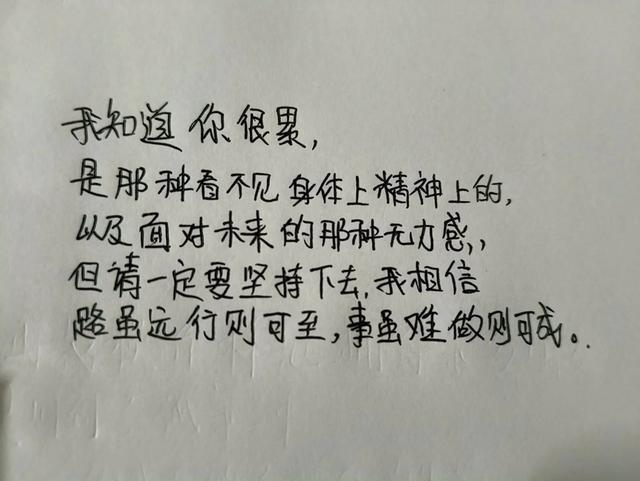 我知道你很累,
是那种看不见身体上精神上的,
以及面对未来的那种无力感,,
但请一定要坚持下去,我相信
路虽远行则可至,事虽难做则可成。.